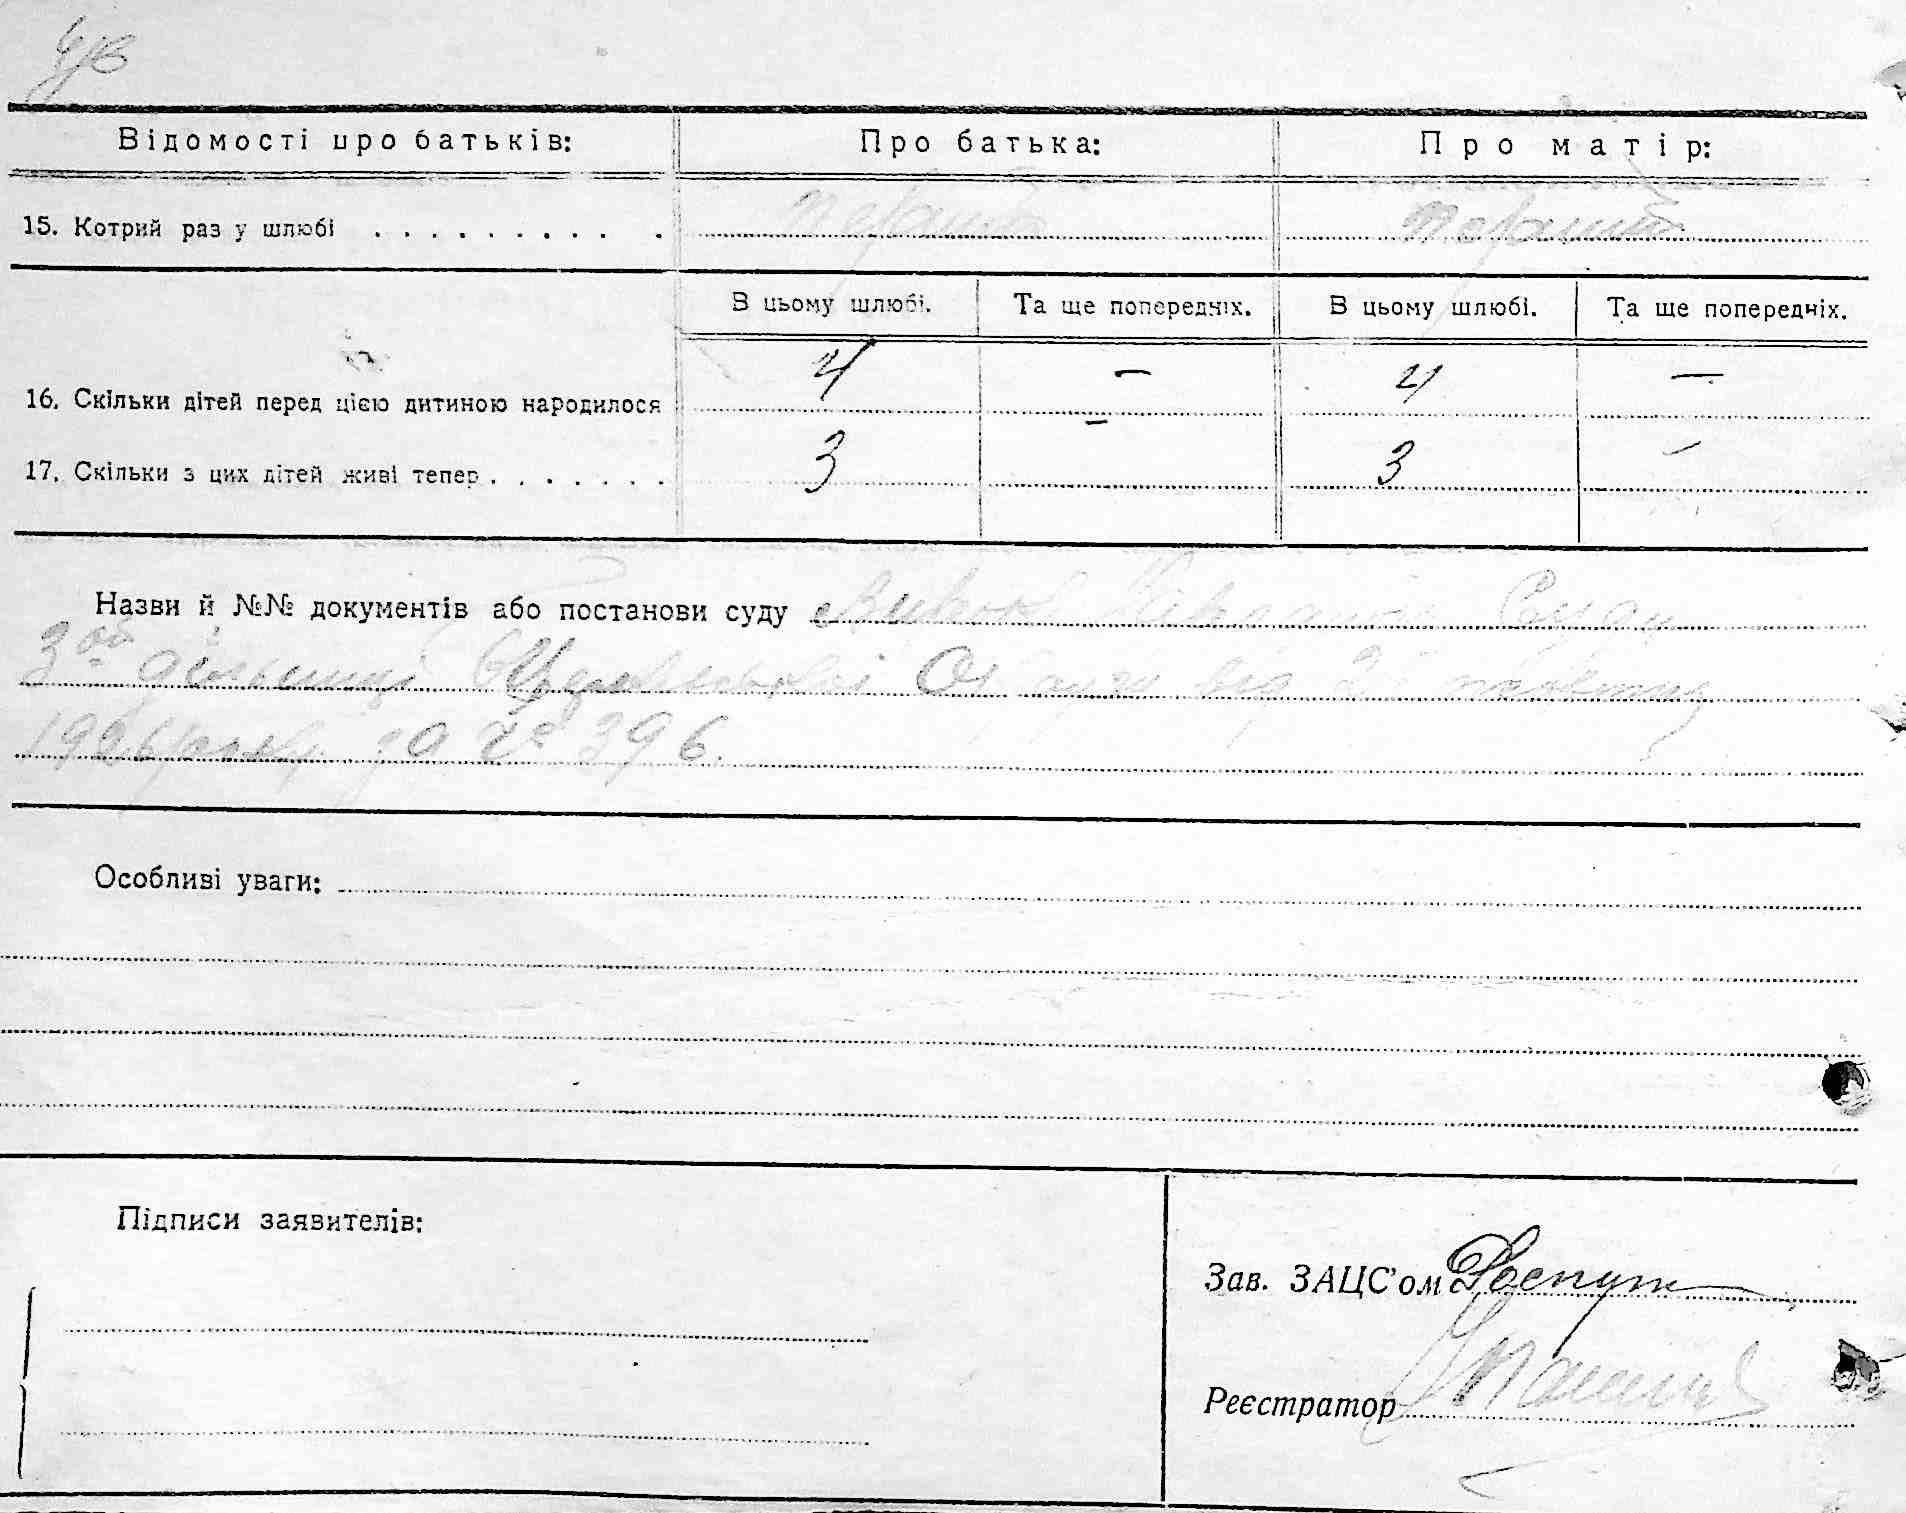 Відомості про батьків: Про батька: Про матір:
15. Котрий раз у шлюбі . . . . . . . . . . перший перший
В цьому шлюбі. Та ще попередніх. В цьому шлюбі. Та ще попередніх.
16. Скільки дітей перед цією дитиною народилося 4 — 4 —
17. Скільки з цих дітей живі тепер . . . . . . . 3 — 3 —
Назви й №№ документів або постанови суду Суду
3ої дільниці Округи від 2 жовтня
1926 року за № 396.
Особливі уваги:
Підписи заявителів:
Зав. ЗАЦС'ом
Реєстратор